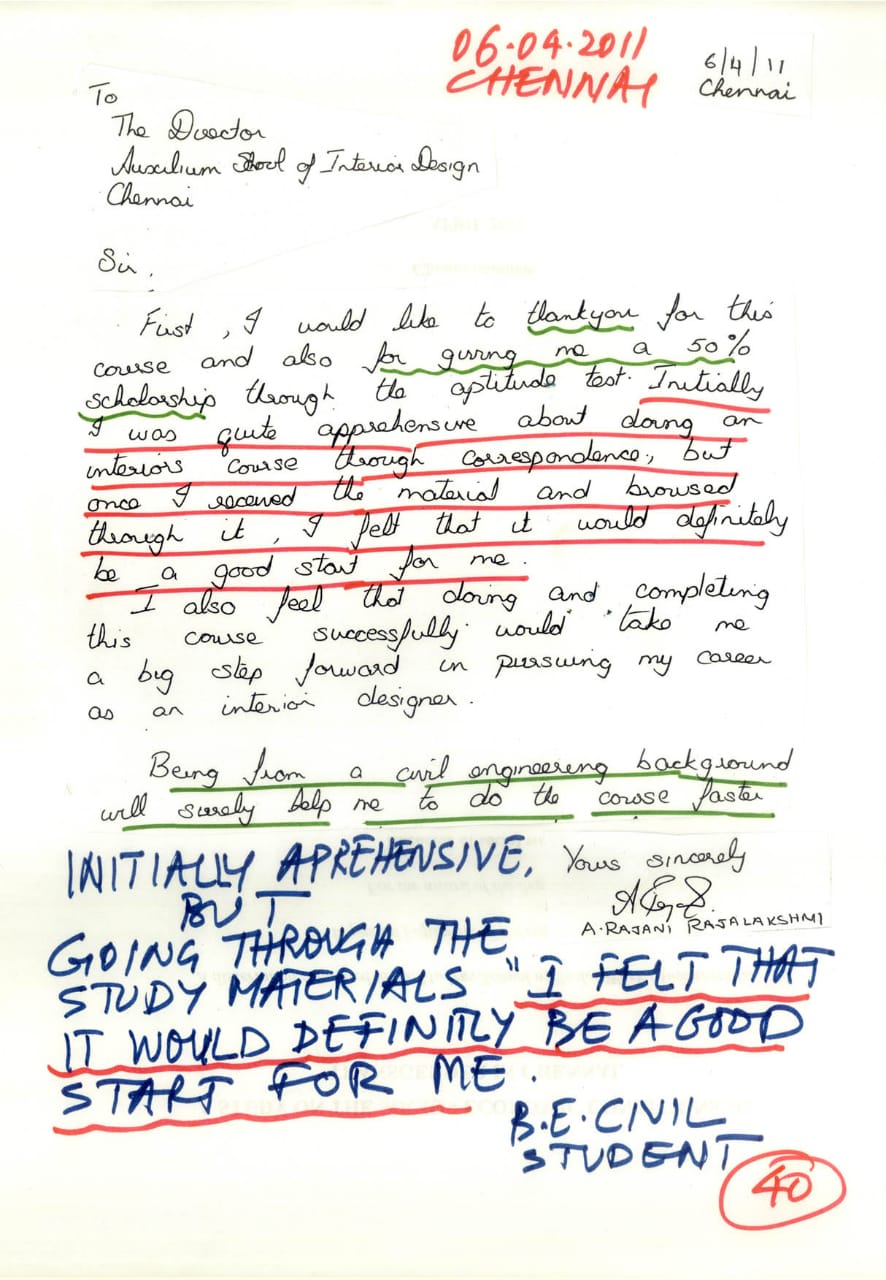 06.04.2011
CHENNAI
6/4/11
Chennai
To
The Director
Auxilium School of Interior Design
Chennai
Sir,
First, I would like to thankyou for this
course and also for giving me a 50%
scholarship through the aptitude test. Initially
I was quite apprehensive about doing an
interiors course through correspondence, but
once I received the material and browsed
through it, I felt that it would definitely
be a good start for me.
I also feel that doing and completing
this course successfully would take me
a big step forward in pursuing my career
as an interior designer.
Being from a civil engineering background
will surely help me to do the course faster
Yours sincerely
A. RAJANI RAJALAKSHMI
INITIALLY APREHENSIVE,
BUT
GOING THROUGH THE
STUDY MATERIALS "I FELT THAT
IT WOULD DEFINITLY BE A GOOD
START FOR ME.
B.E. CIVIL
STUDENT
40